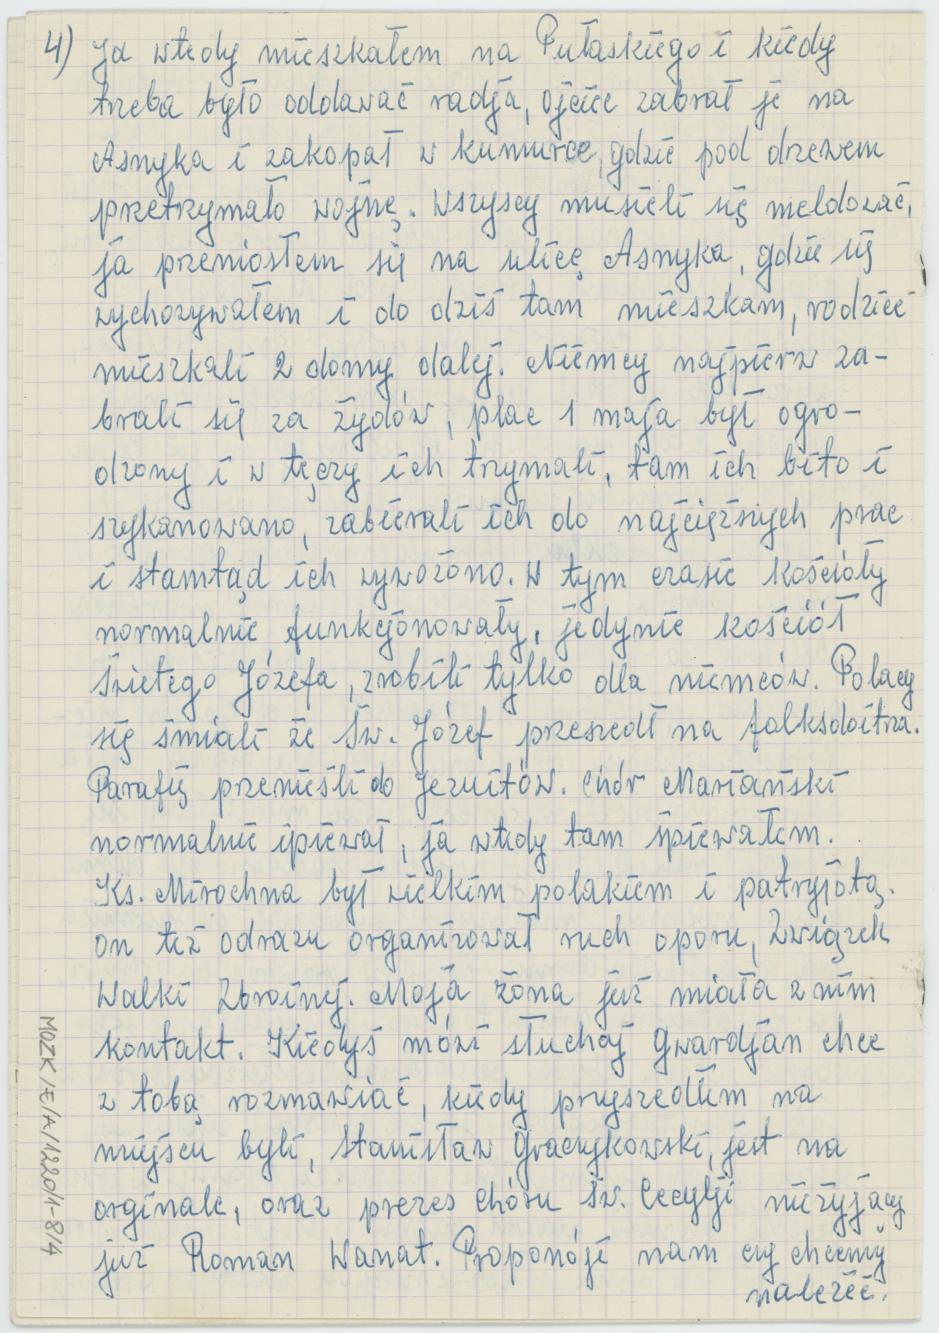 4) Ja wtedy mieszkałem na Pułaskiego i kiedy
trzeba było oddawać radja, ojciec zabrał je na
Asnyka i zakopał w kumurce, gdzie pod drzewem
przetrzymało wojnę. Wszyscy musieli się meldować,
ja przeniosłem się na ulicę Asnyka, gdzie się
wychowywałem i do dziś tam mieszkam, rodzice
mieszkali 2 domy dalej. Niemcy najpierw za-
brali się za żydów, plac 1 maja był ogro-
dzony i w tęczy ich trzymali, tam ich bito i
szykanowano, zabierali ich do najcięższych prac
i stamtąd ich wywożono. W tym czasie kościoły
normalnie funkcjonowały, jedynie kościół
świetego Józefa, zrobili tylko dla niemców. Polacy
się śmiali że Św. Józef przeszedł na folksdoitza.
Parafię przenieśli do Jezuitów. Chór Mariański
normalnie śpiewał, ja wtedy tam śpiewałem.
Ks. Mirochna był wielkim polakiem i patryjotą.
on też odrazu organizował ruch oporu, Związek
Walki Zbrojnej. Moja żona już miała z nim
kontakt. Kiedyś mówi słuchaj Gwardjan chce
z tobą rozmawiać, kiedy przyszedłem na
miejscu byli, Stanisław Graczykowski, jest na
orginale, oraz prezes chóru Św. Cecylji nieżyjący
już Roman Wanat. Proponóje nam czy chcemy
należeć.
MOZK/E/A/1220/1-8/4